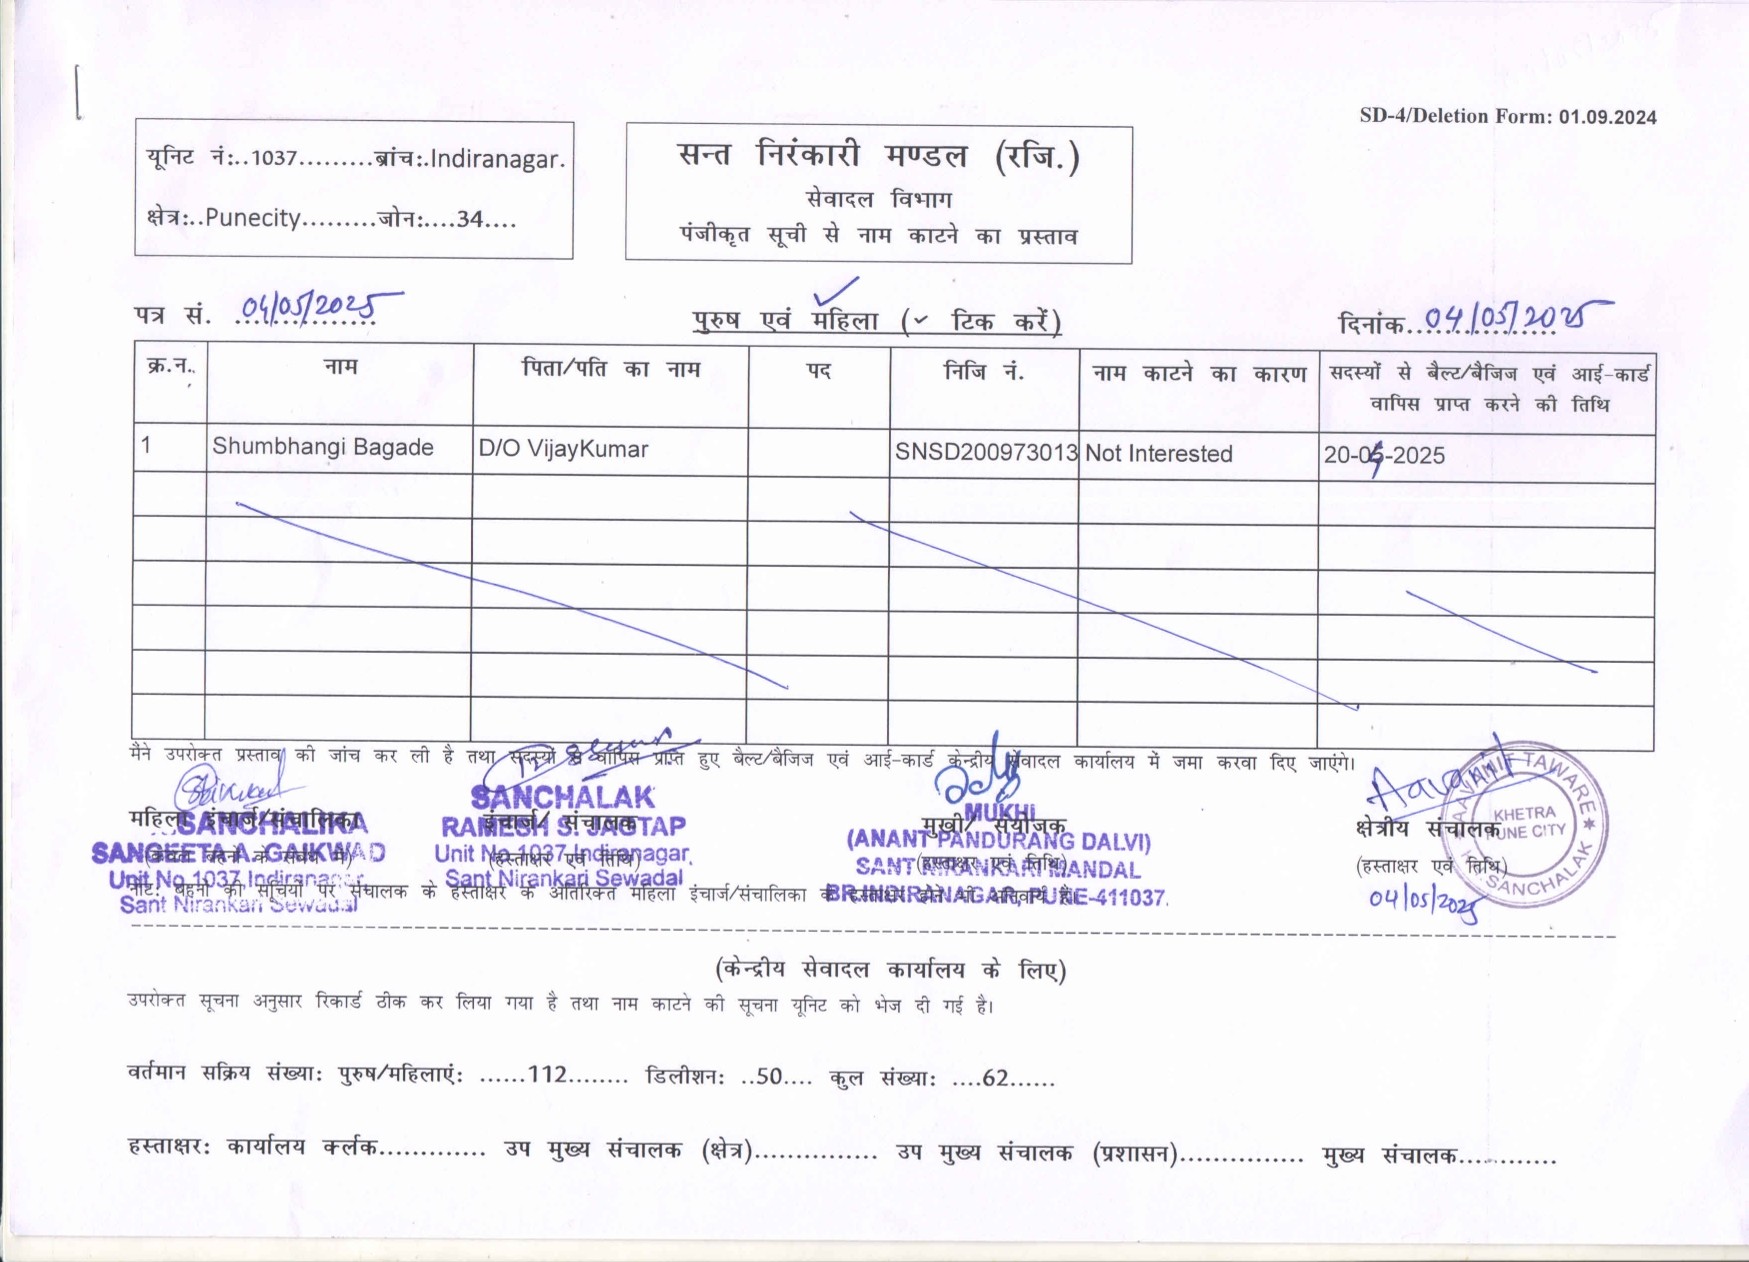 SD-4/Deletion Form: 01.09.2024
यूनिट नं:..1037.........ब्रांच:.Indiranagar.
क्षेत्र:..Punecity.........जोन:....34....
सन्त निरंकारी मण्डल (रजि.)
सेवादल विभाग
पंजीकृत सूची से नाम काटने का प्रस्ताव
पत्र सं. 04/05/2025
पुरुष एवं महिला (✓ टिक करें)
दिनांक..04/05/2025
क्र.न.. नाम पिता/पति का नाम पद निजि नं. नाम काटने का कारण सदस्यों से बैल्ट/बैजिज एवं आई-कार्ड
वापिस प्राप्त करने की तिथि
1 Shumbhangi Bagade D/O VijayKumar SNSD200973013 Not Interested 20-04-2025
मैने उपरोक्त प्रस्ताव की जांच कर ली है तथा सदस्यों से वापिस प्राप्त हुए बैल्ट/बैजिज एवं आई-कार्ड केन्द्रीय सेवादल कार्यालय में जमा करवा दिए जाएंगे।
महिला इंचार्ज/संचालिका
SANCHALIKA
SANGEETA A. GAIKWAD
(केवल बहनों के संबंध में)
Unit No 1037 Indiranagar
Sant Nirankari Sewadal
SANCHALAK
इंचार्ज/ संचालक
RAMESH S. JAGTAP
Unit No 1037 Indiranagar,
(हस्ताक्षर एवं तिथि)
Sant Nirankari Sewadal
MUKHI
मुखी/ संयोजक
(ANANT PANDURANG DALVI)
(हस्ताक्षर एवं तिथि)
SANT NIRANKARI MANDAL
BR.INDIRANAGAR, PUNE-411037.
क्षेत्रीय संचालक
(हस्ताक्षर एवं तिथि)
04/05/2025
AAVANIT TAWARE
KHETRA
PUNE CITY
SANCHALAK
नोट: बहनों की सूचियों पर संचालक के हस्ताक्षर के अतिरिक्त महिला इंचार्ज/संचालिका के हस्ताक्षर होने भी अनिवार्य हैं।
(केन्द्रीय सेवादल कार्यालय के लिए)
उपरोक्त सूचना अनुसार रिकार्ड ठीक कर लिया गया है तथा नाम काटने की सूचना यूनिट को भेज दी गई है।
वर्तमान सक्रिय संख्या: पुरुष/महिलाएं: ......112........ डिलीशन: ..50.... कुल संख्या: ....62......
हस्ताक्षर: कार्यालय क्लर्क............. उप मुख्य संचालक (क्षेत्र)............... उप मुख्य संचालक (प्रशासन)............... मुख्य संचालक............